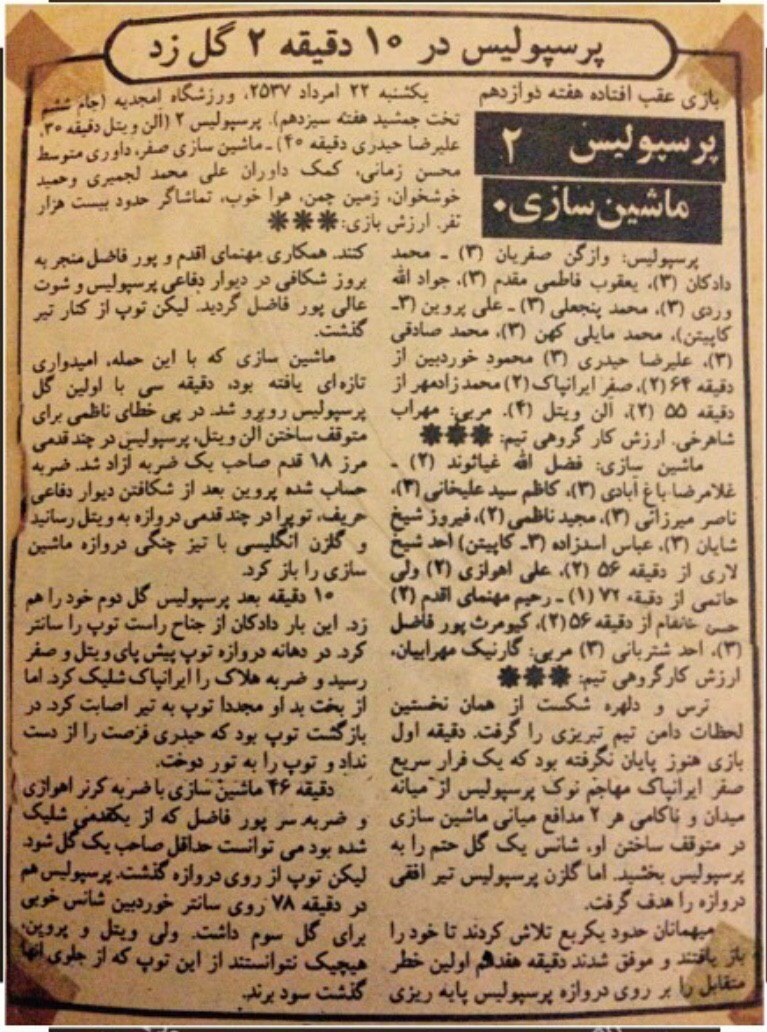 پرسپولیس در ۱۰ دقیقه ۲ گل زد
بازی عقب افتاده هفته دوازدهم
پرسپولیس ۲
ماشین سازی ۰
یکشنبه ۲۲ امرداد ۲۵۳۷، ورزشگاه امجدیه (جام ششم
تخت جمشید هفته سیزدهم). پرسپولیس ۲ (آلن ویتل دقیقه ۳۰،
علیرضا حیدری دقیقه ۴۰) ـ ماشین سازی صفر، داوری متوسط
محسن زمانی، کمک داوران علی محمد لجمیری وحمید
خوشخوان، زمین چمن، هوا خوب، تماشاگر حدود بیست هزار
نفر. ارزش بازی: ✱✱✱
پرسپولیس: وازگن صفریان (۳) ـ محمد
دادکان (۳)، یعقوب فاطمی مقدم (۳)، جواد الله
وردی (۳)، محمد پنجعلی (۳) ـ علی پروین (۳ـ
کاپیتن)، محمد مایلی کهن (۳)، محمد صادقی
(۳)، علیرضا حیدری (۳) محمود خوردبین از
دقیقه ۶۴ (۲)، صفر ایرانپاک (۲) محمد زادمهر از
دقیقه ۵۵ (۲)، آلن ویتل (۴). مربی: مهراب
شاهرخی. ارزش کار گروهی تیم: ✱✱✱
ماشین سازی: فضل الله غیاثوند (۲) ـ
غلامرضا باغ آبادی (۳)، کاظم سید علیخانی (۳)،
ناصر میرزائی (۳)، مجید ناظمی (۲)، فیروز شیخ
شایان (۳)، عباس اسدزاده (۳ـ کاپیتن) احد شیخ
لاری از دقیقه ۵۶ (۲)، علی اهوازی (۲) ولی
حاتمی از دقیقه ۷۲ (۱) ـ رحیم مهنمای اقدم (۲)
حسن خانفام از دقیقه ۵۶ (۲)، کیومرث پور فاضل
(۳)، احد شتربانی (۳) مربی: گارنیک مهرابیان،
ارزش کارگروهی تیم: ✱✱✱
ترس و دلهره شکست از همان نخستین
لحظات دامن تیم تبریزی را گرفت. دقیقه اول
بازی هنوز پایان نگرفته بود که یک فرار سریع
صفر ایرانپاک مهاجم نوک پرسپولیس از میانه
میدان و ناکامی هر ۲ مدافع میانی ماشین سازی
در متوقف ساختن او، شانس یک گل حتم را به
پرسپولیس بخشید. اما گلزن پرسپولیس تیر افقی
دروازه را هدف گرفت.
میهمانان حدود یکربع تلاش کردند تا خود را
باز یافتند و موفق شدند دقیقه هفدهم اولین خطر
متقابل را بر روی دروازه پرسپولیس پایه ریزی
کنند. همکاری مهنمای اقدم و پور فاضل منجر به
بروز شکافی در دیوار دفاعی پرسپولیس و شوت
عالی پور فاضل گردید. لیکن توپ از کنار تیر
گذشت.
ماشین سازی که با این حمله، امیدواری
تازه‌ای یافته بود، دقیقه سی با اولین گل
پرسپولیس روبرو شد. در پی خطای ناظمی برای
متوقف ساختن آلن ویتل، پرسپولیس در چند قدمی
مرز ۱۸ قدم صاحب یک ضربه آزاد شد. ضربه
حساب شده پروین بعد از شکافتن دیوار دفاعی
حریف، توپ را در چند قدمی دروازه به ویتل رسانید
و گلزن انگلیسی با تیز چنگی دروازه ماشین
سازی را باز کرد.
۱۰ دقیقه بعد پرسپولیس گل دوم خود را هم
زد. این بار دادکان از جناح راست توپ را سانتر
کرد. در دهانه دروازه توپ پیش پای ویتل و صفر
رسید و ضربه هلاک را ایرانپاک شلیک کرد. اما
از بخت بد او مجددا توپ به تیر اصابت کرد. در
بازگشت توپ بود که حیدری فرصت را از دست
نداد و توپ را به تور دوخت.
دقیقه ۴۶ ماشین سازی با ضربه کرنر اهوازی
و ضربه سر پور فاضل که از یکقدمی شلیک
شده بود می توانست حداقل صاحب یک گل شود.
لیکن توپ از روی دروازه گذشت. پرسپولیس هم
در دقیقه ۷۸ روی سانتر خوردبین شانس خوبی
برای گل سوم داشت. ولی ویتل و پروین،
هیچیک نتوانستند از این توپ که از جلوی آنها
گذشت سود برند.